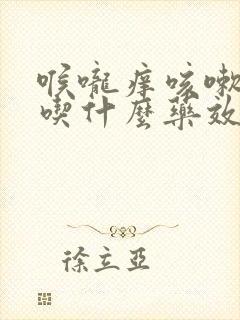 喉嚨痒咳嗽
喫什麼藥效
徐立亞